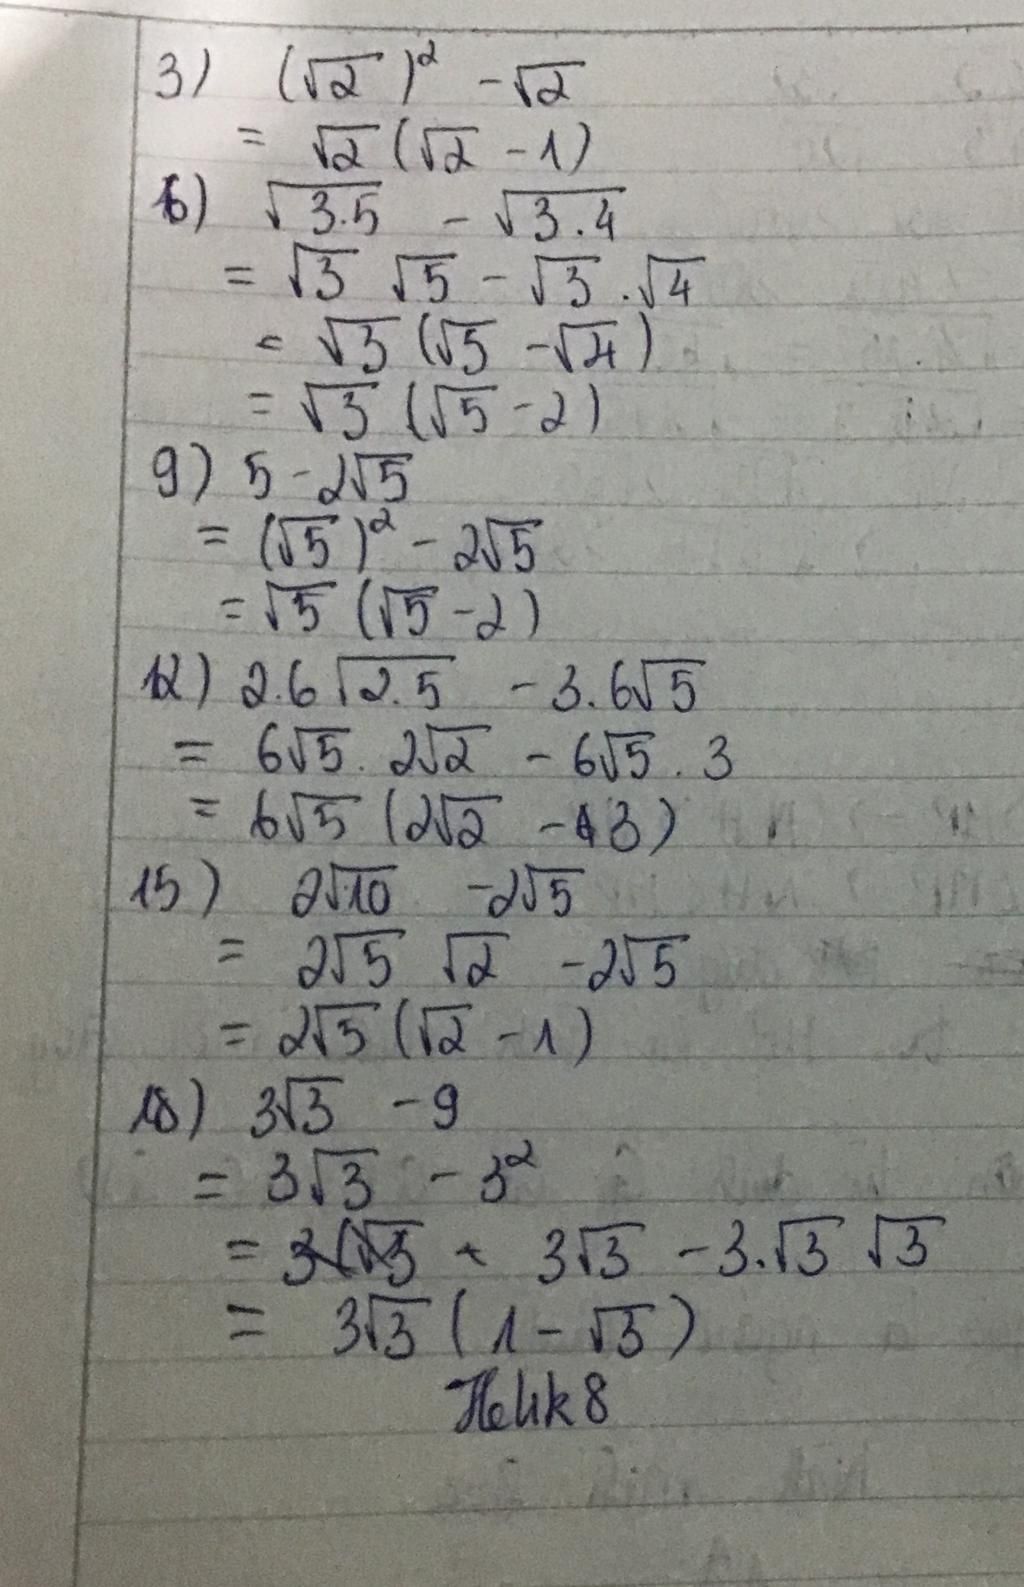 3) (√2)² - √2
= √2 (√2 - 1)
6) √3.5 - √3.4
= √3 √5 - √3 . √4
= √3 (√5 - √4)
= √3 (√5 - 2)
9) 5 - 2√5
= (√5)² - 2√5
= √5 (√5 - 2)
12) 2.6√2.5 - 3.6√5
= 6√5 . 2√2 - 6√5 . 3
= 6√5 (2√2 - 3)
15) 2√10 - 2√5
= 2√5 √2 - 2√5
= 2√5 (√2 - 1)
18) 3√3 - 9
= 3√3 - 3²
= 3√3 - 3.√3 √3
= 3√3 (1 - √3)